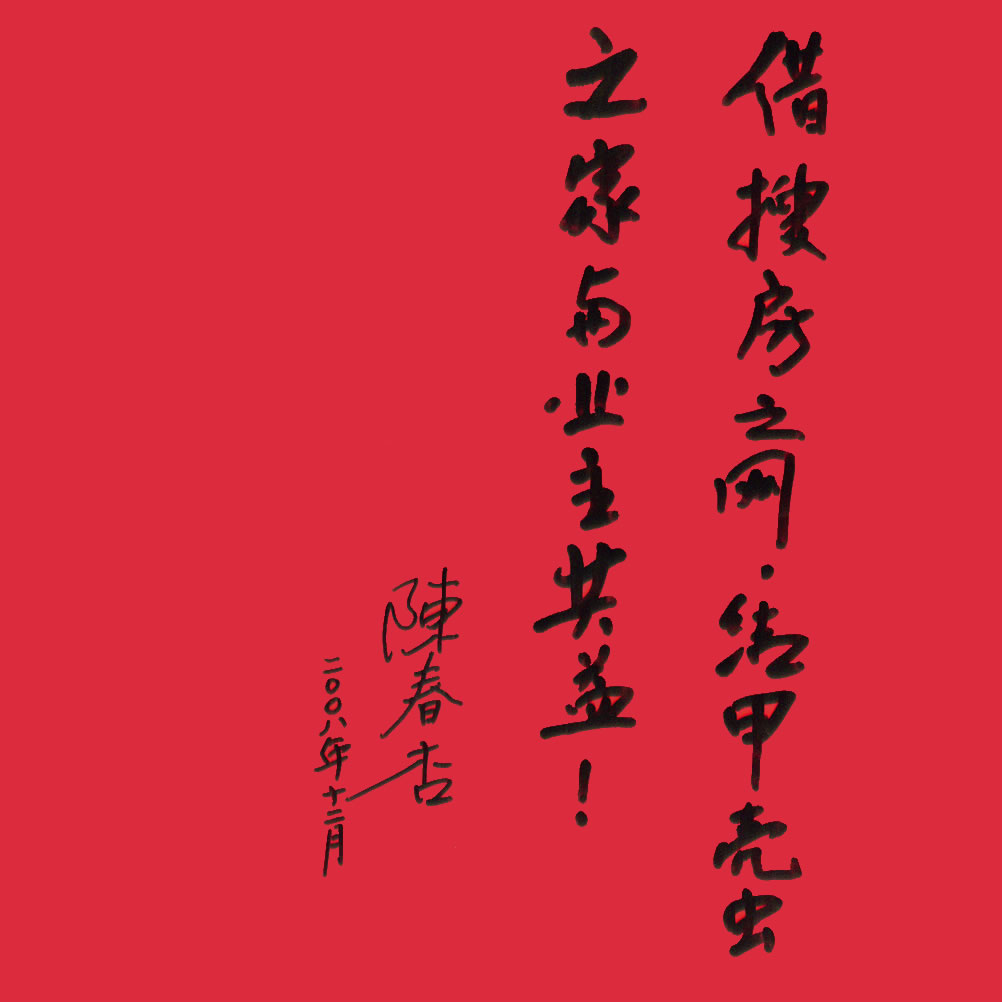 借搜房之网·结甲壳虫
之家与业主共益！
陳春杏
二〇〇八年十二月